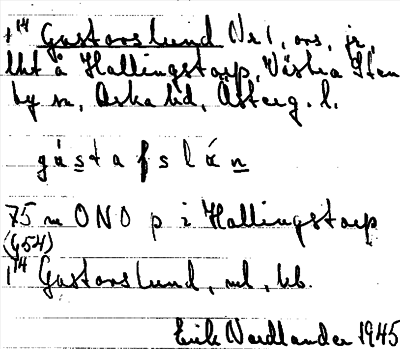 1¹⁴ Gustavslund Nr 1, avs, jr,
lht å Hallingstorp, Västra Sten
by sn, Aska hd, Österg. l.
gùstafslán
75 m ONO p i Hallingstorp
(954)
1¹⁴ Gustavslund, ml, kb.
Erik Nordlander 1945